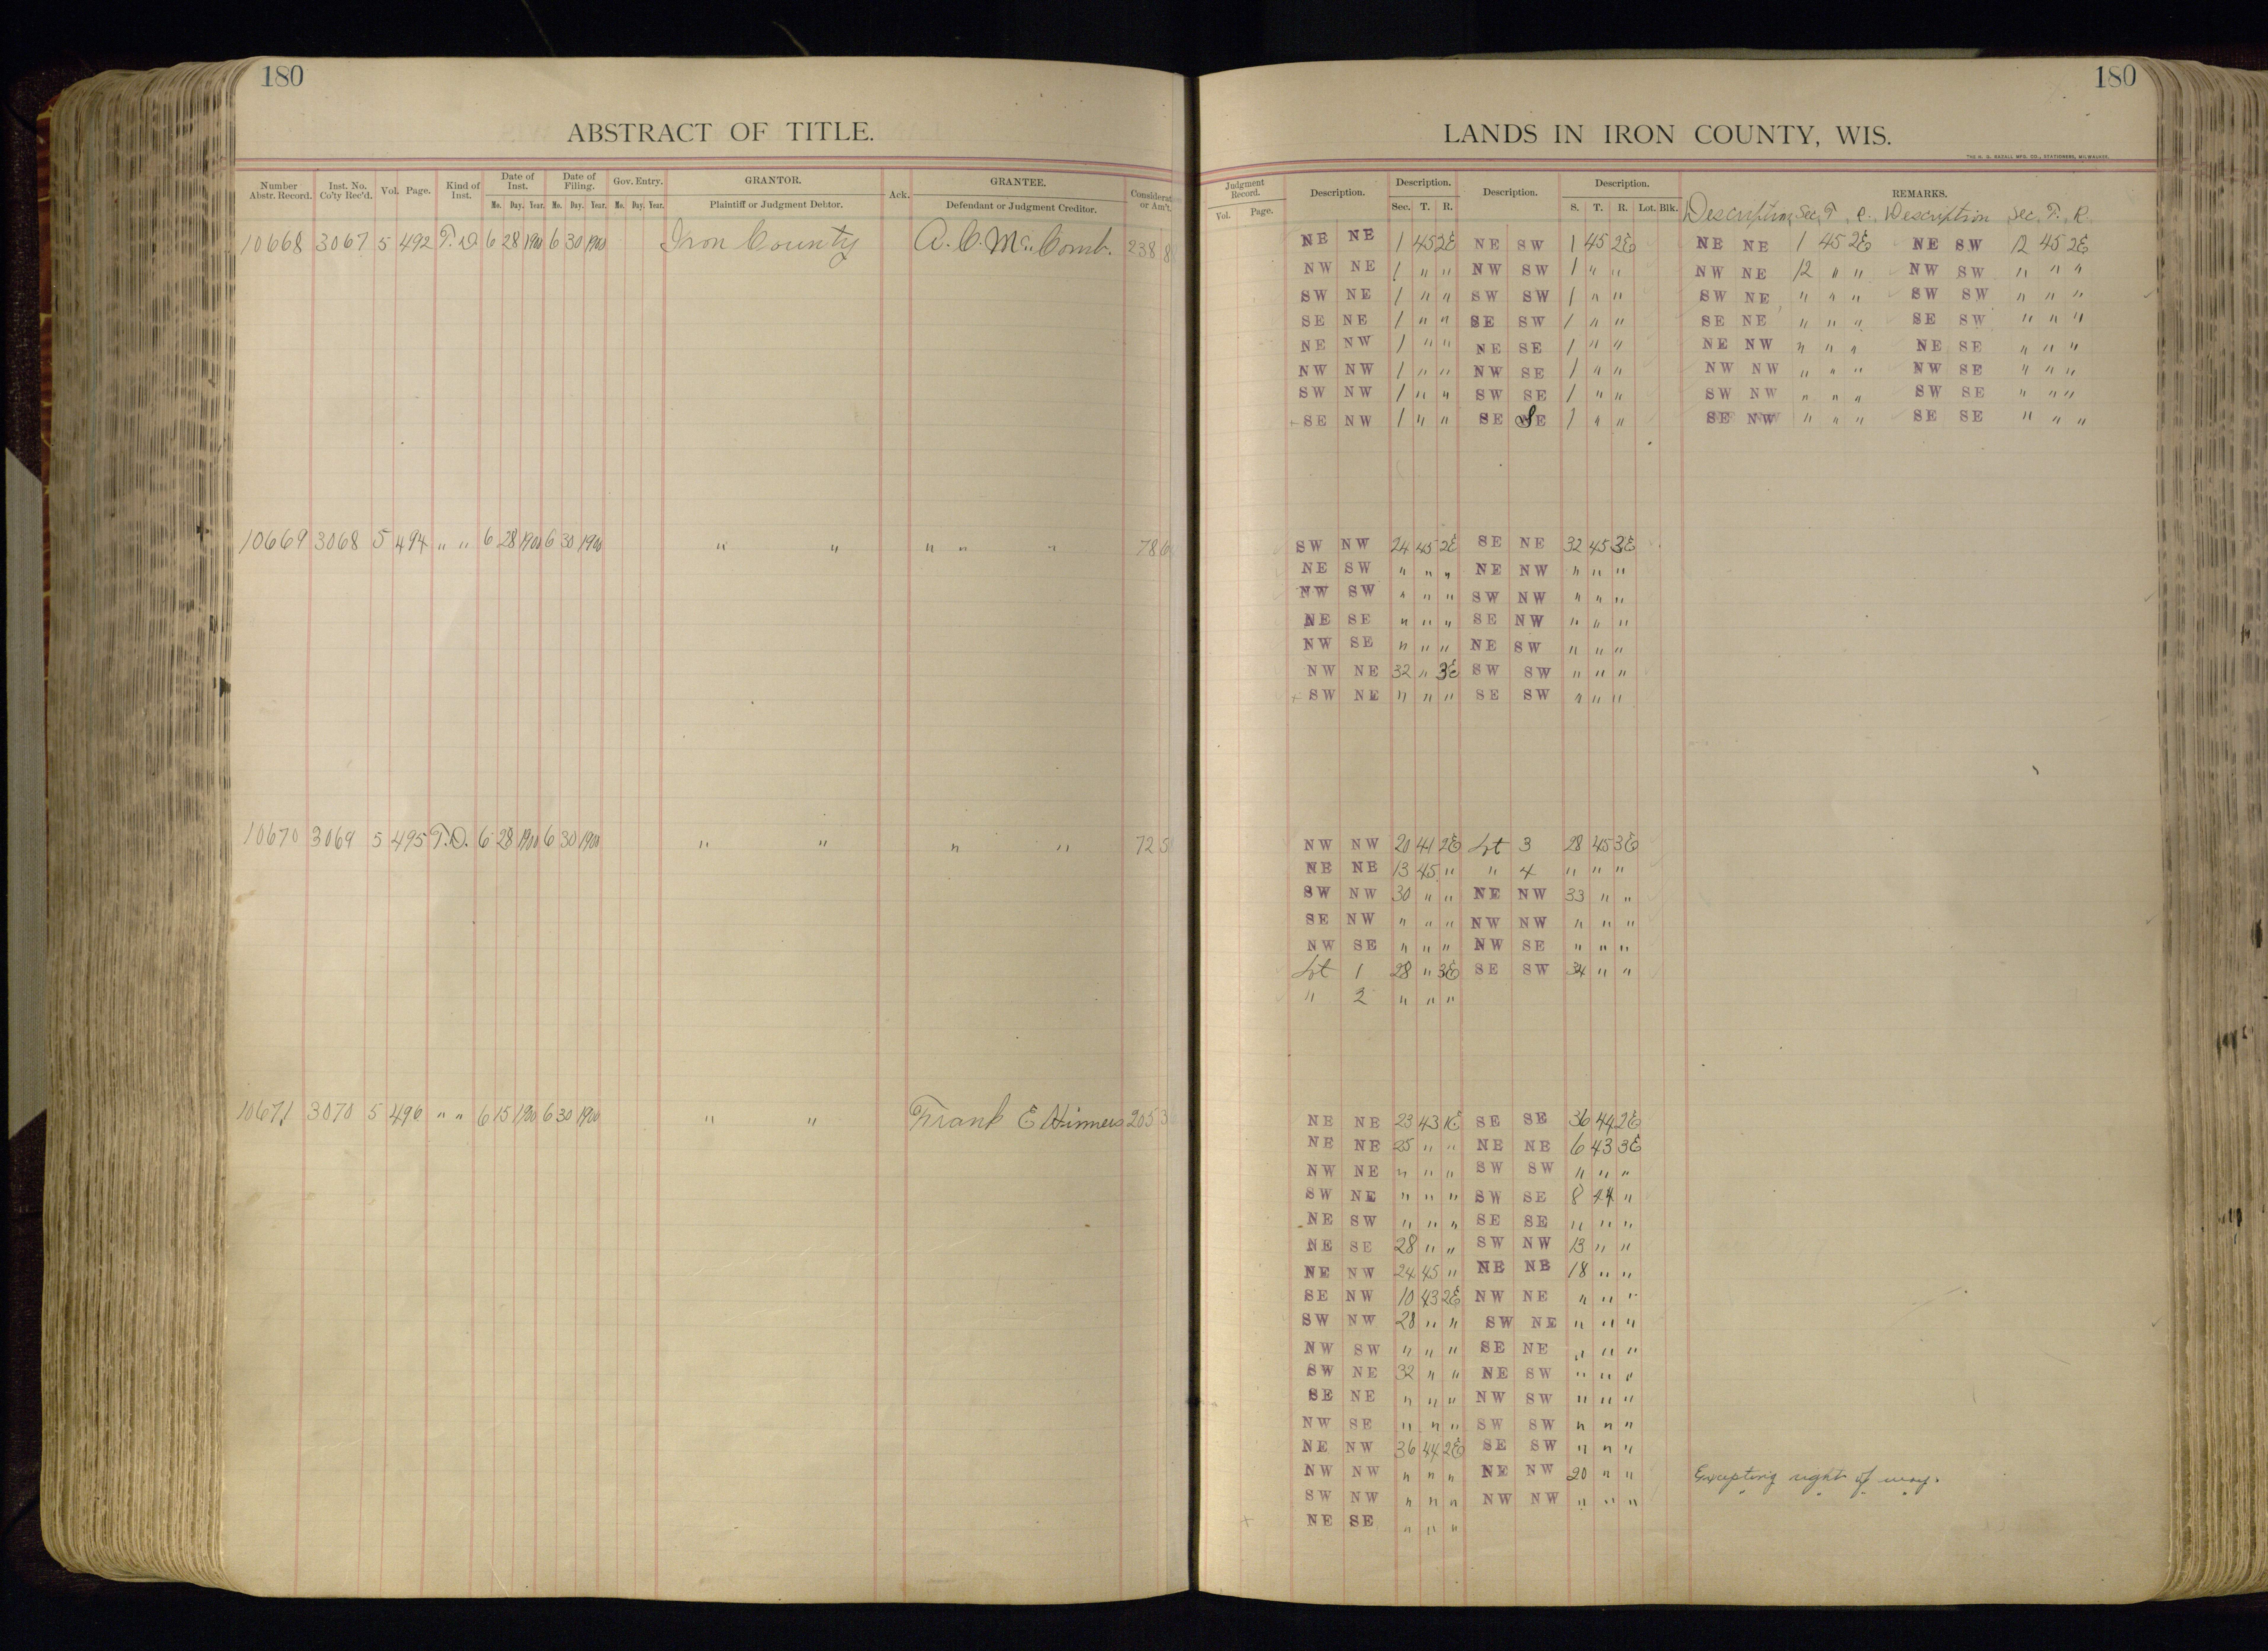 180
ABSTRACT OF TITLE.
Number Abstr. Record. Inst. No. Co'ty Rec'd. Vol. Page. Kind of Inst. Date of Inst. Mo. Day. Year. Date of Filing. Mo. Day. Year. Gov. Entry. Mo. Day. Year. GRANTOR. Plaintiff or Judgment Debtor. Ack. GRANTEE. Defendant or Judgment Creditor. Considerat or Am't.
10668 3067 5 492 T.D 6 28 1900 6 30 1900 Iron County A. C. McComb. 238 8
10669 3068 5 494 " " 6 28 1900 6 30 1900 " " " " " 78 6
10670 3069 5 495 T.D. 6 28 1900 6 30 1900 " " " " 72 5
10671 3070 5 496 " " 6 15 1900 6 30 1900 " " Frank E Hinners 205 3
180
LANDS IN IRON COUNTY, WIS.
Judgment Record. Vol. Page. Description. Description. Sec. T. R. Description. Description. S. T. R. Lot. Blk. REMARKS.
Description Sec. T. R. Description Sec. T. R.
NE NE 1 45 2E NE SW 1 45 2E NE NE 1 45 2E NE SW 12 45 2E
NW NE 1 " " NW SW 1 " " NW NE 12 " " NW SW " " "
SW NE 1 " " SW SW 1 " " SW NE " " " SW SW " " "
SE NE 1 " " SE SW 1 " " SE NE " " " SE SW " " "
NE NW 1 " " NE SE 1 " " NE NW " " " NE SE " " "
NW NW 1 " " NW SE 1 " " NW NW " " " NW SE " " "
SW NW 1 " " SW SE 1 " " SW NW " " " SW SE " " "
SE NW 1 " " SE SE 1 " " SE NW " " " SE SE " " "
SW NW 24 45 2E SE NE 32 45 3E
NE SW " " " NE NW " " "
NW SW " " " SW NW " " "
NE SE " " " SE NW " " "
NW SE " " " NE SW " " "
NW NE 32 " 3E SW SW " " "
SW NE " " " SE SW " " "
NW NW 20 41 2E Lot 3 28 45 3E
NE NE 13 45 " " 4 " " "
SW NW 30 " " NE NW 33 " "
SE NW " " " NW NW " " "
NW SE " " " NW SE " " "
Lot 1 28 " 3E SE SW 34 " "
" 2 " " "
NE NE 23 43 1E SE SE 36 44 2E
NE NE 25 " " NE NE 6 43 3E
NW NE " " " SW SW " " "
SW NE " " " SW SE 8 44 "
NE SW " " " SE SE " " "
NE SE 28 " " SW NW 13 " "
NE NW 24 45 " NE NE 18 " "
SE NW 10 43 2E NW NE " " "
SW NW 28 " " SW NE " " "
NW SW " " " SE NE " " "
SW NE 32 " " NE SW " " "
SE NE " " " NW SW " " "
NW SE " " " SW SW " " "
NE NW 36 44 2E SE SW " " "
NW NW " " " NE NW 20 " " Excepting right of way.
SW NW " " " NW NW " " " " " " "
NE SE " " "